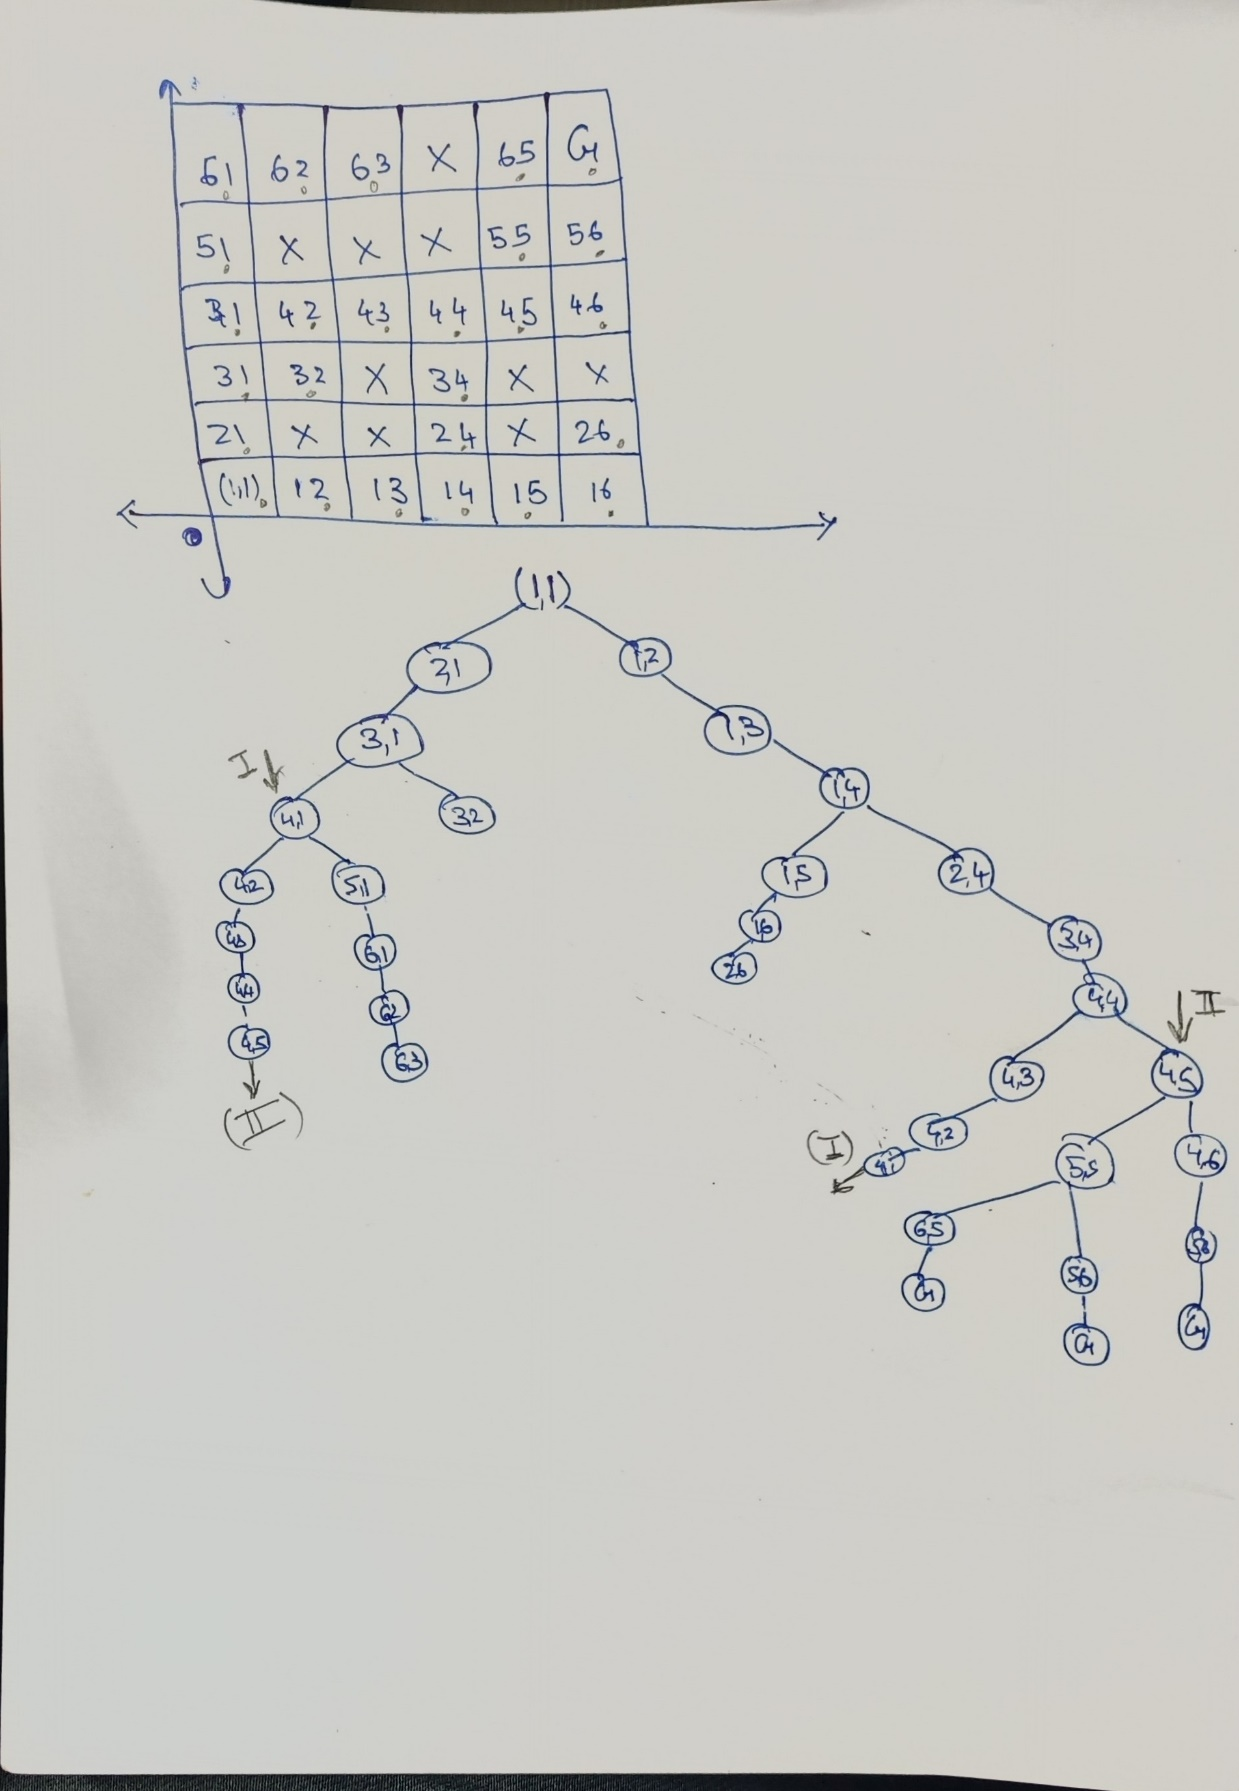 61 62 63 X 65 G
51 X X X 55 56
41 42 43 44 45 46
31 32 X 34 X X
21 X X 24 X 26
(1,1) 12 13 14 15 16
0
(1,1)
2,1 1,2
3,1 1,3
I 4,1 3,2 1,4
42 5,1 1,5 2,4
43 6,1 16 3,4
44 62 26 4,4 II
4,5 63 4,3 4,5
(II) 4,2
(I) 4,1 5,5 4,6
65 56 56
G G G